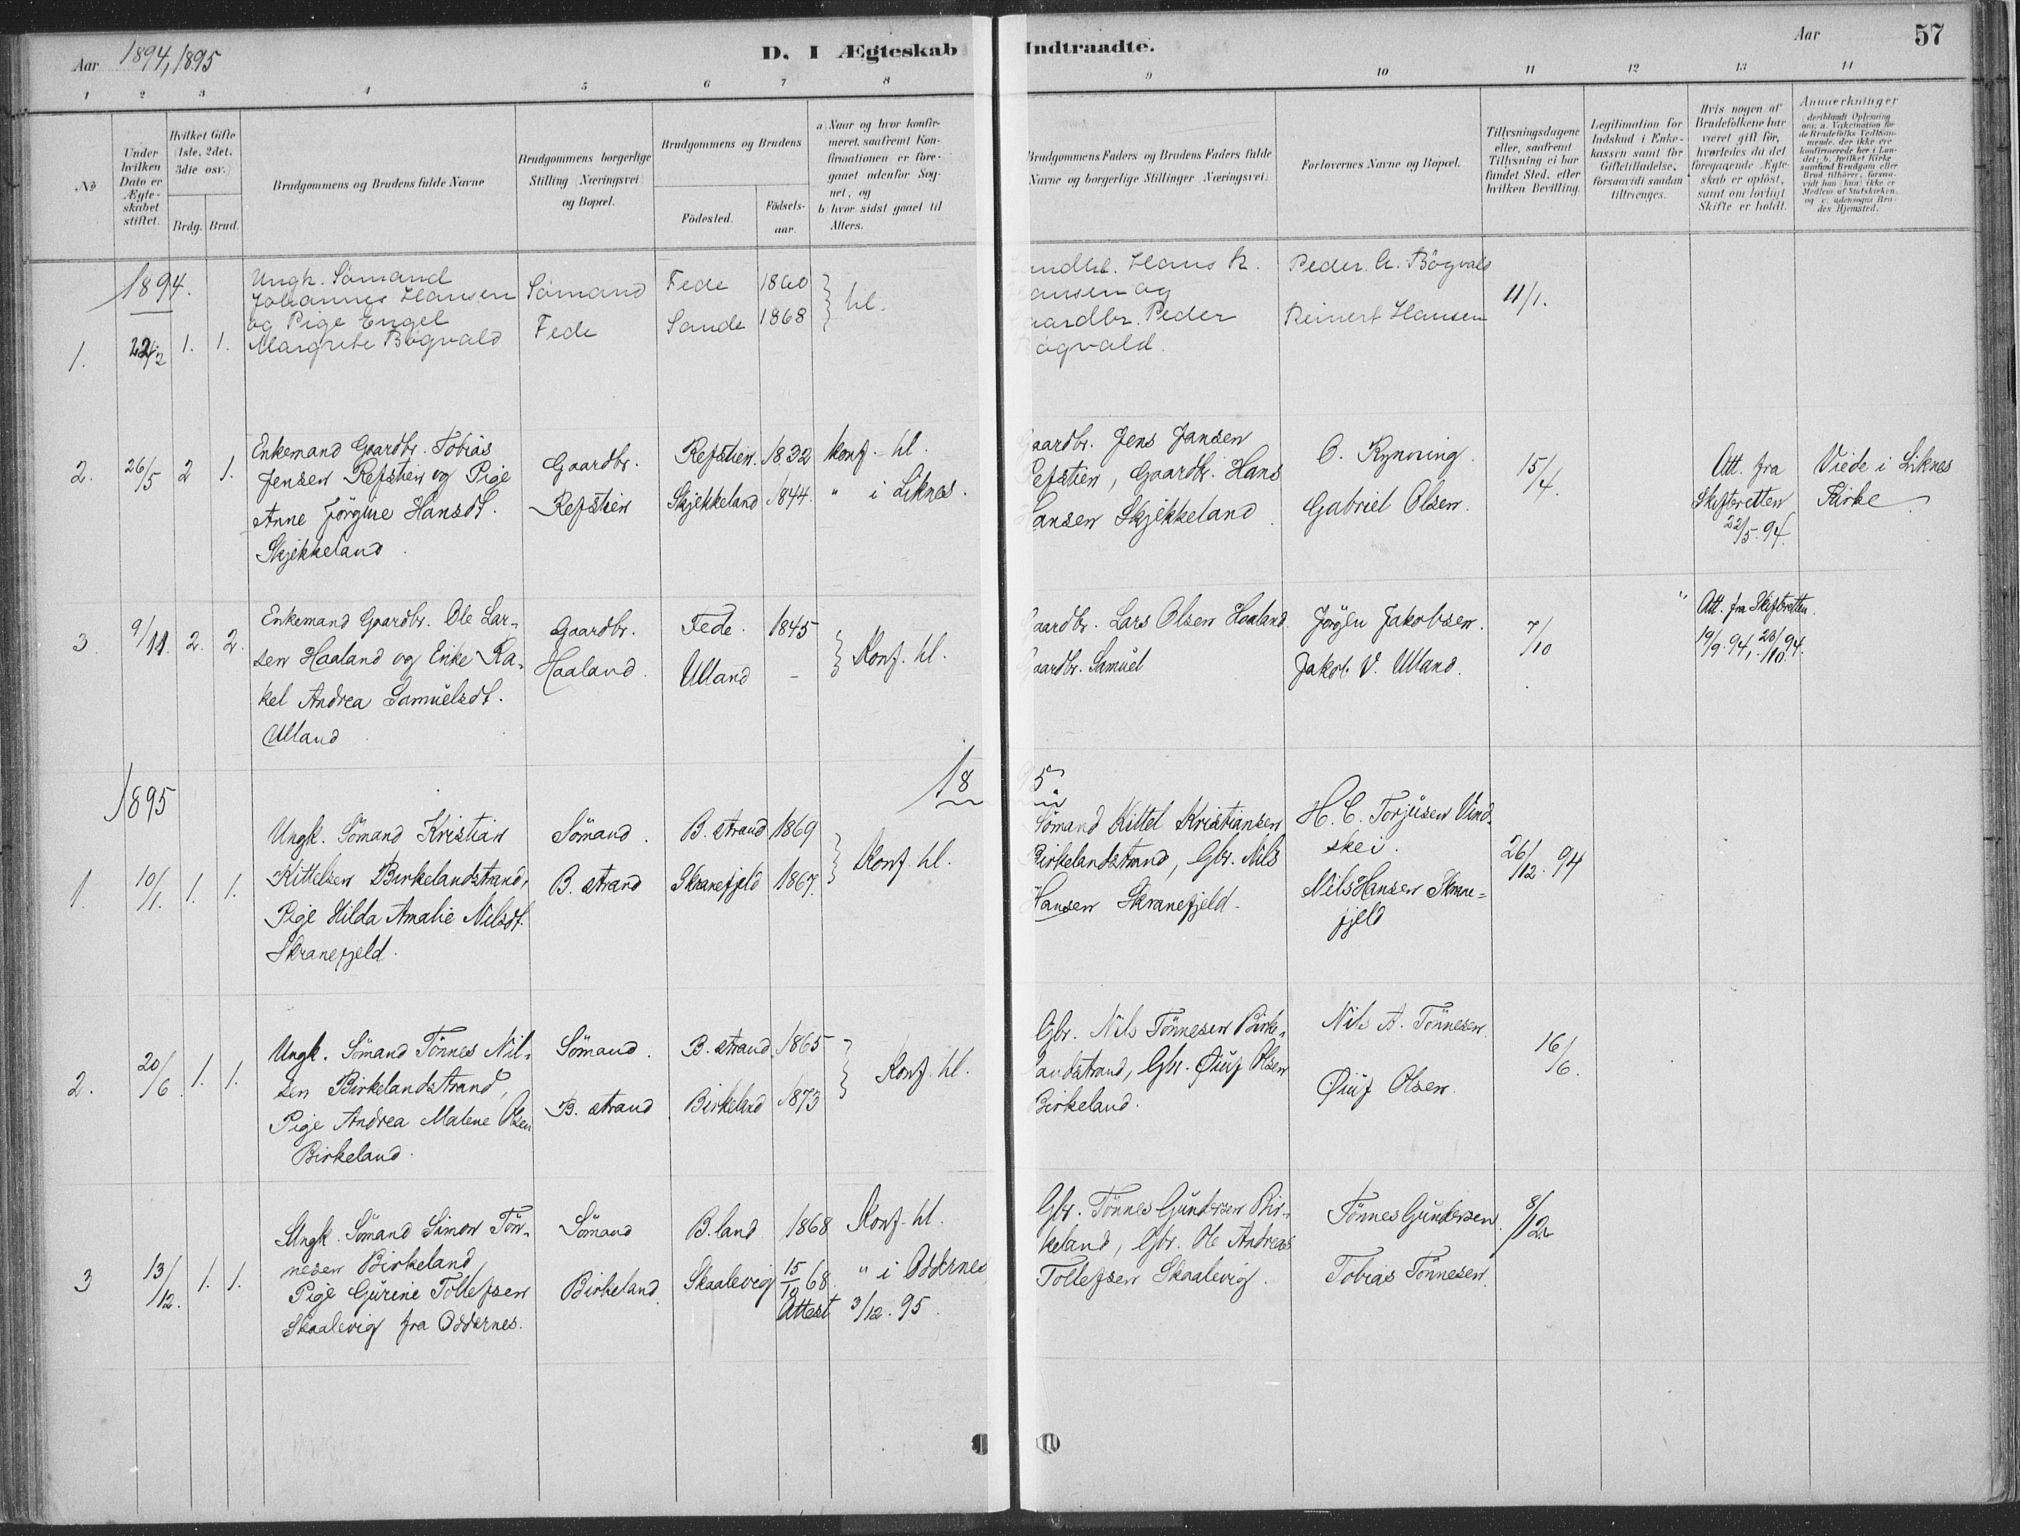 Aar 1894, 1895
D. I Ægteskab Indtraadte.
Aar
57
1 2 3 4 5 6 7 8 9 10 11 12 13 14
No
Under hvilken Dato er Ægteskabet stiftet.
Hvilket Gifte (1ste, 2det, 3die osv.)
Brdg. Brud.
Brudgommens og Brudens fulde Navne
Brudgommens borgerlige Stilling (Næringsvei) og Bopæl.
Brudgommens og Brudens
Födested.
Födselsaar.
a) Naar og hvor konfirmeret, saafremt Konfirmationen er foregaaet udenfor Sognet, og
b) hvor sidst gaaet til Alters.
Brudgommens Faders og Brudens Faders fulde Navne og borgerlige Stillinger (Næringsvei)
Forlovernes Navne og Bopæl.
Tillysningsdagene eller, saafremt Tillysning ei har fundet Sted, efter hvilken Bevilling.
Legitimation for Indskud i Enkekassen samt for Giftetilladelse, forsaavidt saadan tiltrænges.
Hvis nogen af Brudefolkene har været gift før, hvorledes da det foregaaende Ægteskab er oplöst, samt om lovligt Skifte er holdt.
Anmærkninger
deriblandt Oplysning om: a. Vakcination for de Brudefolks Vedkommende, der ikke ere konfirmerede her i Landet; b. hvilket Kirkesamfund Brudgom eller Brud tilhörer, forsaavidt han (hun) ikke er Medlem af Statskirken, og c. udensogns Brudes Hjemsted.
1894.
1.
22/2
1. 1.
Ungk. Sömand
Johannes Hansen
og Pige Engel
Margrete Bøgvald
Sömand
Fede
Fede 1860
Sande 1868
hl.
Hans R.
Hansen og
Peder
Bøgvald.
Peder A. Bøgvald
Reinert Hansen
11/1.
2.
26/5
2 1.
Enkemand Gaardbr. Tobias
Jensen Refstien og Pige
Anne Jörgine Hansdt.
Skjekkeland
Gaardbr.
Refstien
Refstien. 1832
Skjekkeland 1844.
konf. hl.
" i Liknes.
Gaardbr. Jens Jansen
Refstien, Gaardbr. Hans
Hansen Skjekkeland
O. Rynning
Gabriel Olsen.
15/4.
Att. fra
Skifteretten
22/5. 94.
Viede i Liknes
Kirke
3.
9/11.
2. 2.
Enkemand Gaardbr. Ole Lar-
sen Haaland og Enke Ra-
kel Andrea Samuelsdt.
Ulland
Gaardbr.
Haaland.
Fede. 1845
Ulland -
Konf. hl.
Gaardbr. Lars Olsen Haaland.
Gaardbr. Samuel
Jörgen Jakobsen.
Jakob V. Ulland.
7/10
"
Att. fra Skifteretten.
19/9. 94, 23/10 94.
1895
1895
1.
10/1.
1. 1.
Ungk. Sömand Kristian
Kittelsen Birkelandstrand,
Pige Hilda Amalie Nilsdt.
Skranefjeld.
Sömand.
B. strand
B. strand 1869
Skranefjeld 1867.
Konf. hl.
Sömand Kittel Kristiansen
Birkelandstrand, Gbr. Nils
Hansen Skranefjeld.
H. C. Torjusen Vind-
skei.
Nils Hansen Skrane-
fjeld
26/12. 94
2.
20/6
1. 1.
Ungk. Sömand Tönnes Nil-
sen Birkelandstrand,
Pige Andrea Malene Olsen
Birkeland.
Sömand.
B. strand
B. strand 1865
Birkeland 1873
Konf. hl.
Gbr. Nils Tönnesen Birke-
landstrand, Gbr. Øiuf Olsen
Birkeland.
Nils A. Tönnesen
Øiuf Olsen.
16/6.
3
13/12.
1. 1.
Ungk. Sömand Simon Tön-
nesen Birkeland
Pige Gurine Tollefsen
Skaalevig fra Oddernes.
Sömand
Birkeland.
B.land 1868
Skaalevig 15/10 68.
Attest 3/12. 95.
Konf. hl.
" i Oddernes
Gbr. Tönnes Gundersen Bir-
keland, Gbr. Ole Andreas
Tollefsen Skaalevig.
Tönnes Gundersen.
Tobias Tönnesen.
8/12